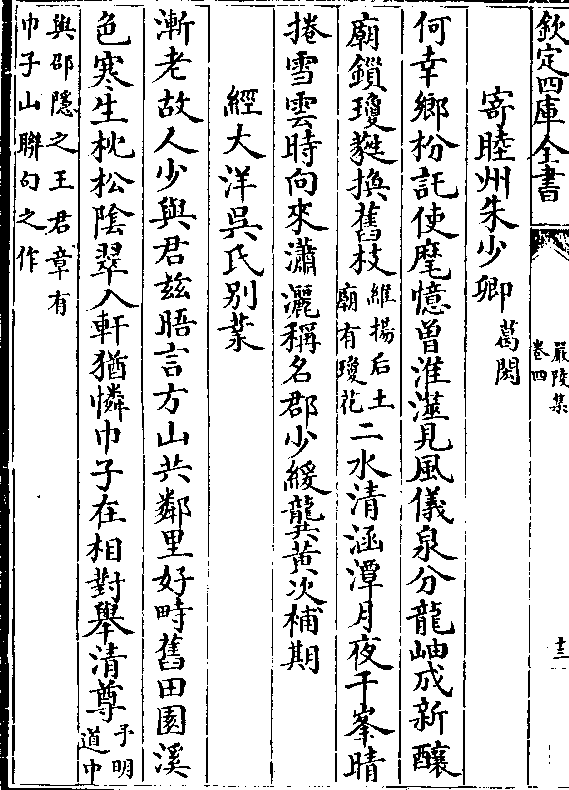 欽定四庫全書
嚴陵集
卷四
十三
寄睦州朱少卿
葛閎
何幸鄉枌託使麾憶曾淮澨見風儀泉分龍岫成新釀
廟鎖瓊蕤換舊枝
維揚后土
廟有瓊花
二水清涵潭月夜千峯晴
捲雪雲時向來瀟灑稱名郡少緩龔黄次補期
經大洋吳氏别業
漸老故人少與君兹晤言方山共鄰里好畤舊田園溪
色寒生枕松隂翠入軒猶憐巾子在相對舉清尊
予明
道中
與邵隱之王君章有
巾子山聨句之作